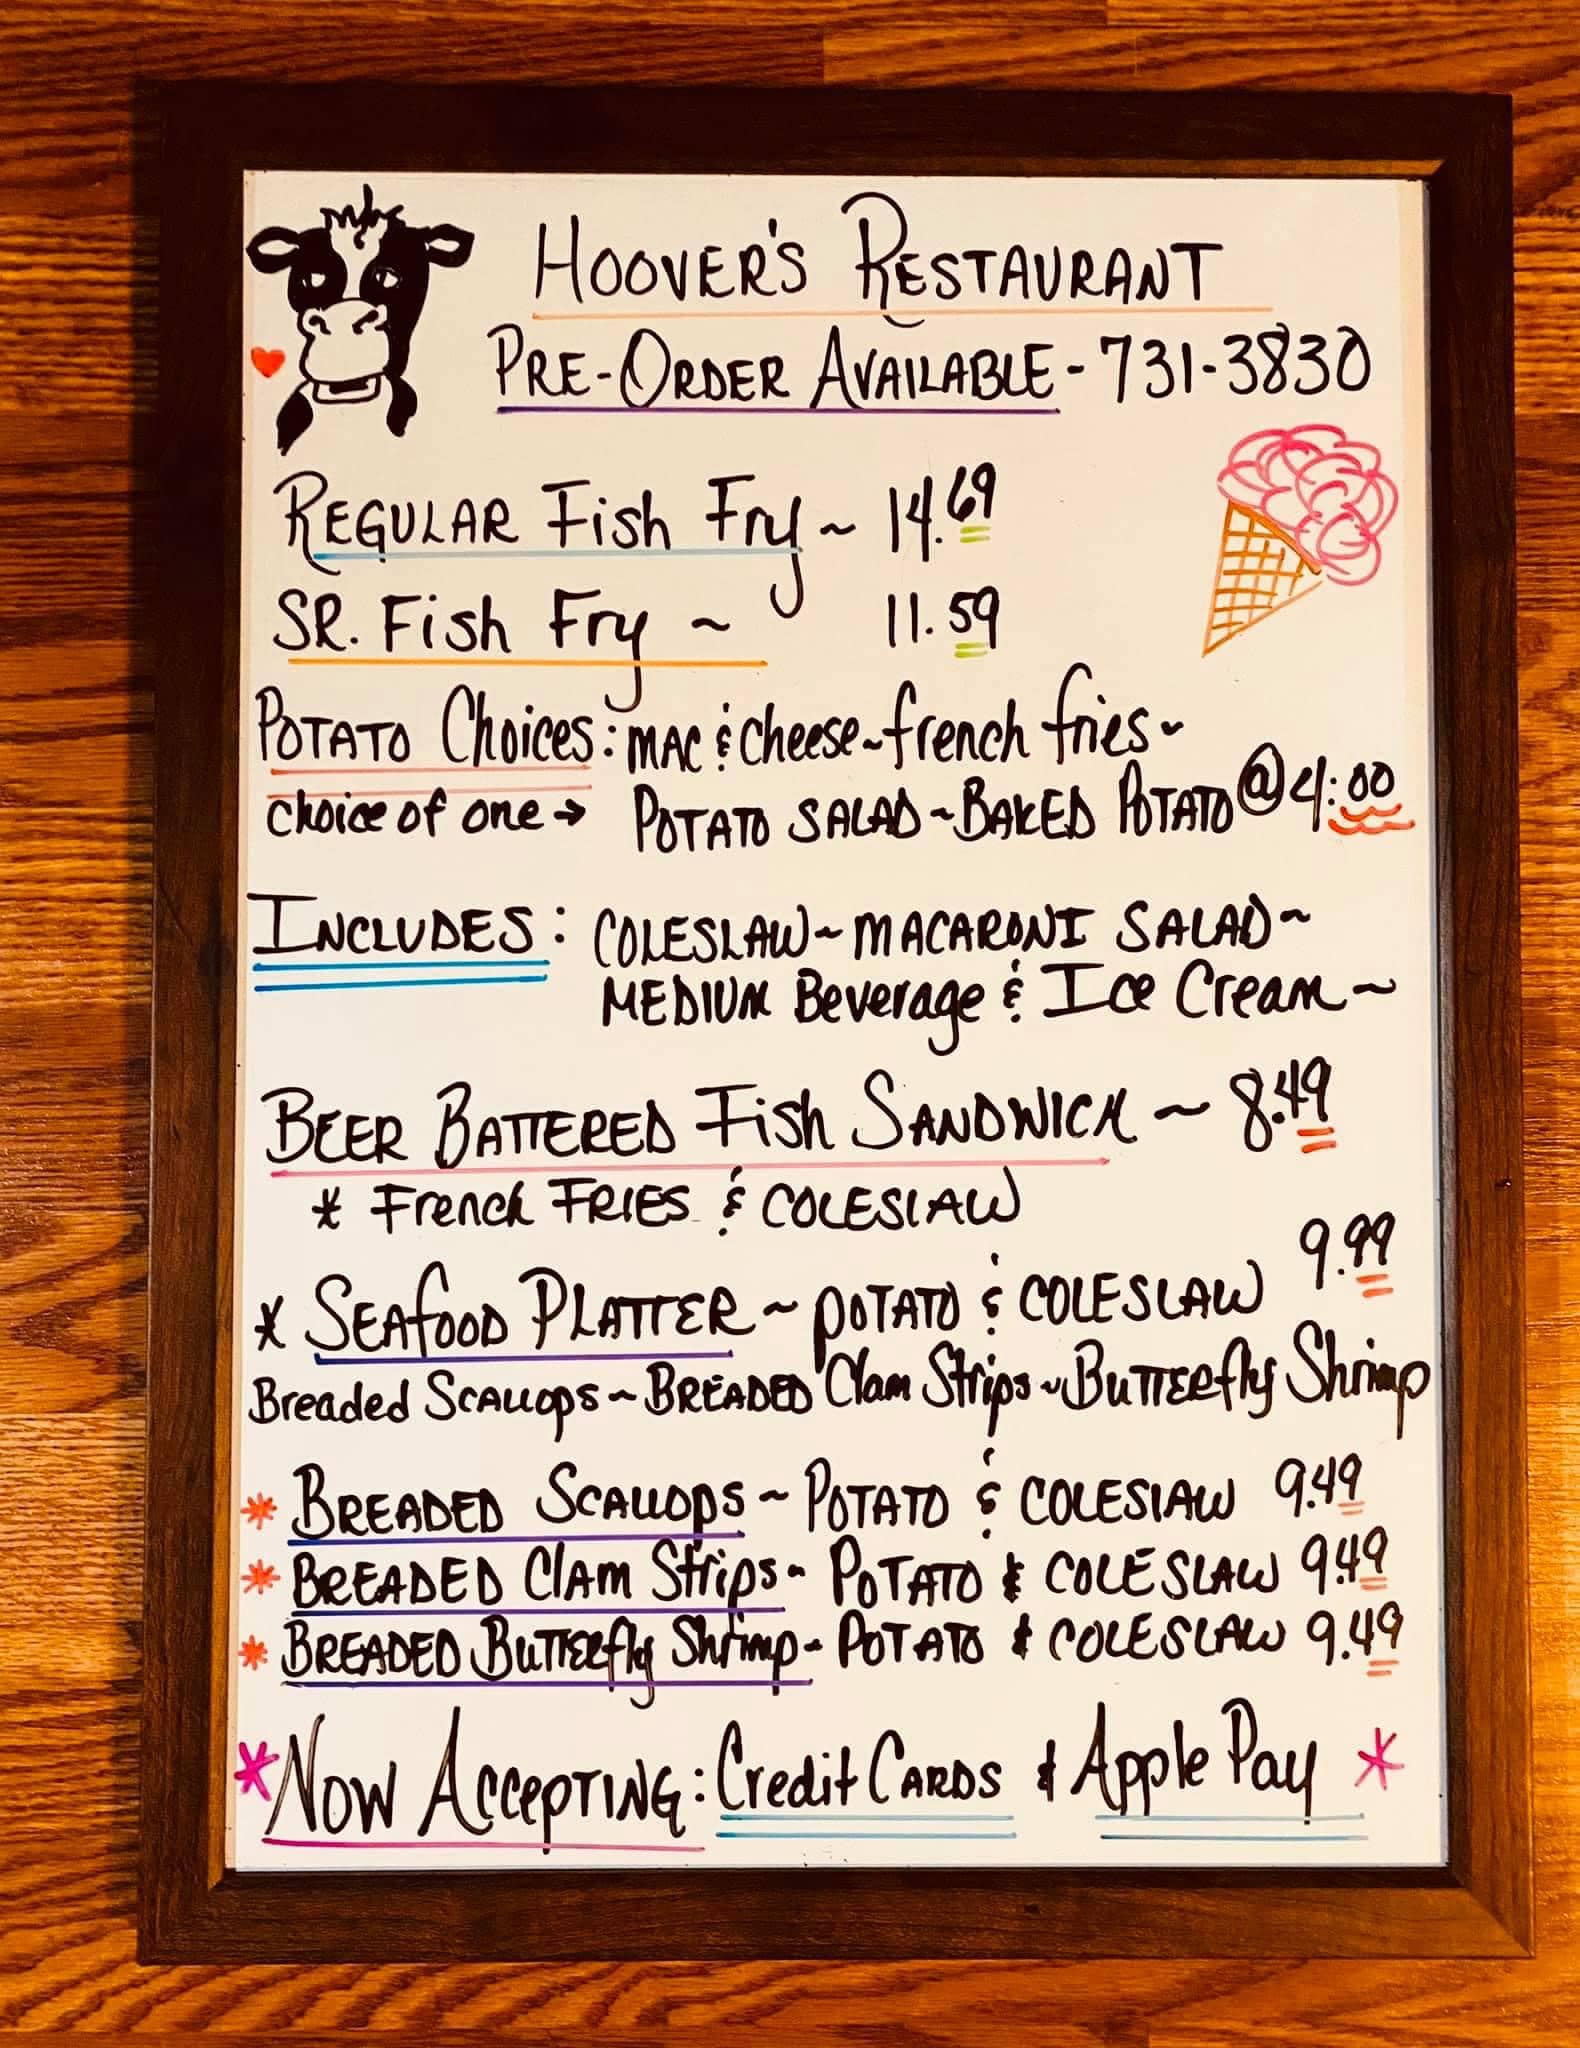 HOOVER'S RESTAURANT
PRE-ORDER AVAILABLE - 731-3830
REGULAR Fish Fry ~ 14.69
SR. Fish Fry ~ 11.59
POTATO Choices: MAC & Cheese ~ french fries ~
choice of one → POTATO SALAD ~ BAKED POTATO @ 4:00
INCLUDES: COLESLAW ~ MACARONI SALAD ~
MEDIUM Beverage & Ice Cream ~
BEER BATTERED Fish SANDWICH ~ 8.49
* French FRIES & COLESLAW
* SEAfOOD PLATTER ~ POTATO & COLESLAW 9.99
Breaded SCALLOPS ~ BREADED Clam Strips ~ BUTTERfly Shrimp
* BREADED SCALLOPS ~ POTATO & COLESLAW 9.49
* BREADED Clam Strips ~ POTATO & COLESLAW 9.49
* BREADED BUTTERfly Shrimp ~ POTATO & COLESLAW 9.49
* NOW ACCEPTING: Credit CARDS & Apple Pay *